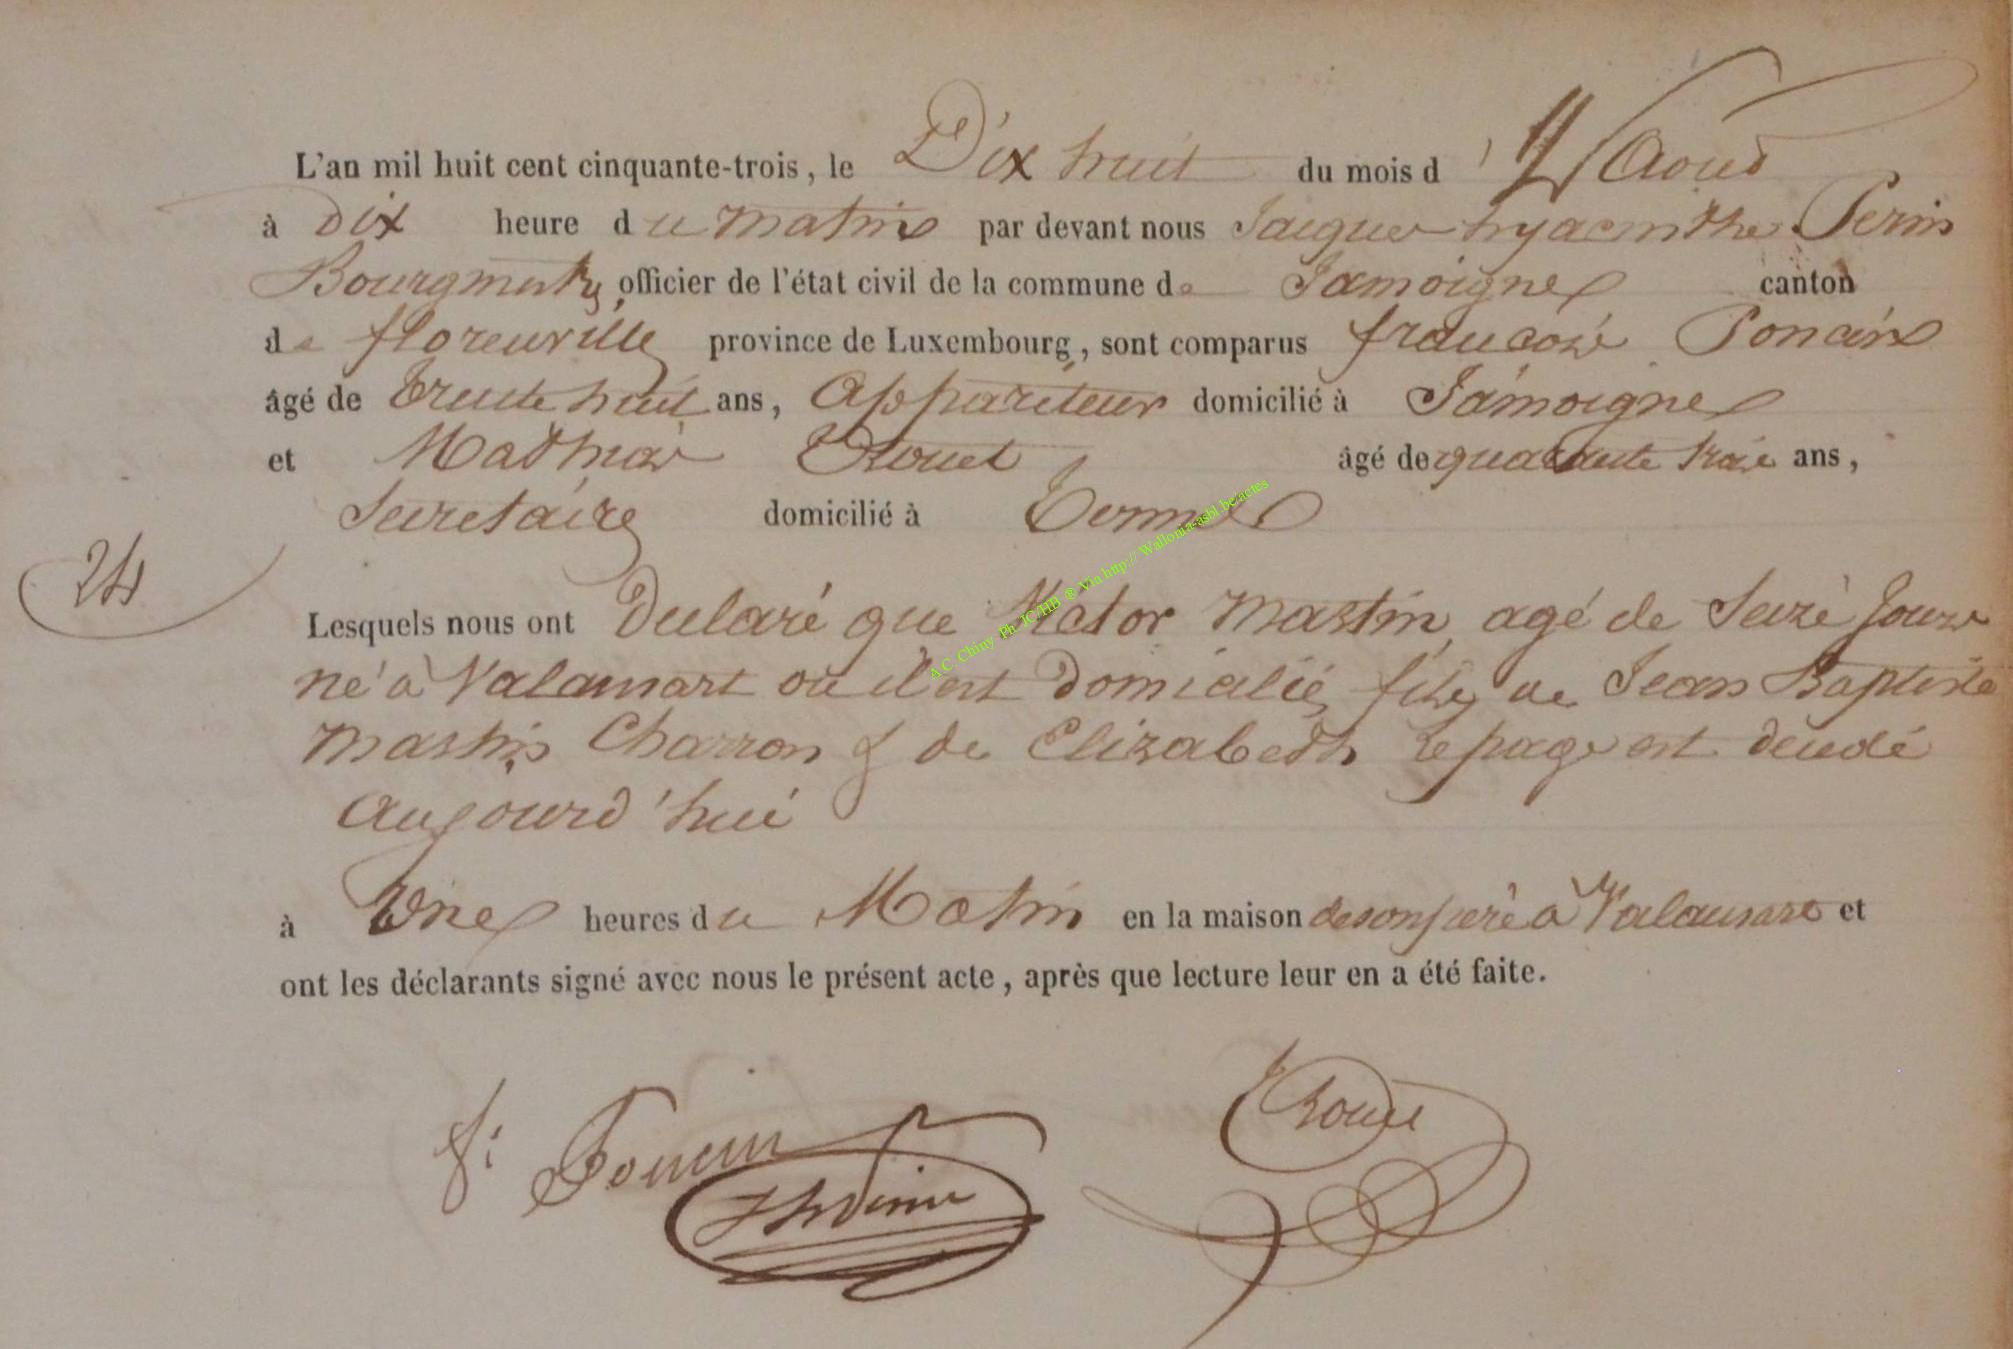 L'an mil huit cent cinquante-trois, le Dix huit du mois d' Aoud
à dix heure du matin par devant nous Jacques hyacinthe Perin
Bourgmestre, officier de l'état civil de la commune de Jamoigne canton
de florenville province de Luxembourg, sont comparus francois Poncin
âgé de trente huit ans, appariteur domicilié à Jamoigne
et Mathias Rouet âgé de quarante trois ans,
Secretaire domicilié à
24
Lesquels nous ont Declaré que Victor Martin, agé de Seize Jours
né à Valansart où il est Domicilié, fils de Jean Baptiste
Martin Charron & de Elizabeth Lepage est décédé
aujourd'hui
à Une heures du Matin en la maison de son pere à Valansart et
ont les déclarants signé avec nous le présent acte, après que lecture leur en a été faite.
f. Poncin
Rouet
JH Perin
A.C. Chiny Ph JC/HB ® Via http://Wallonia-asbl.be/actes